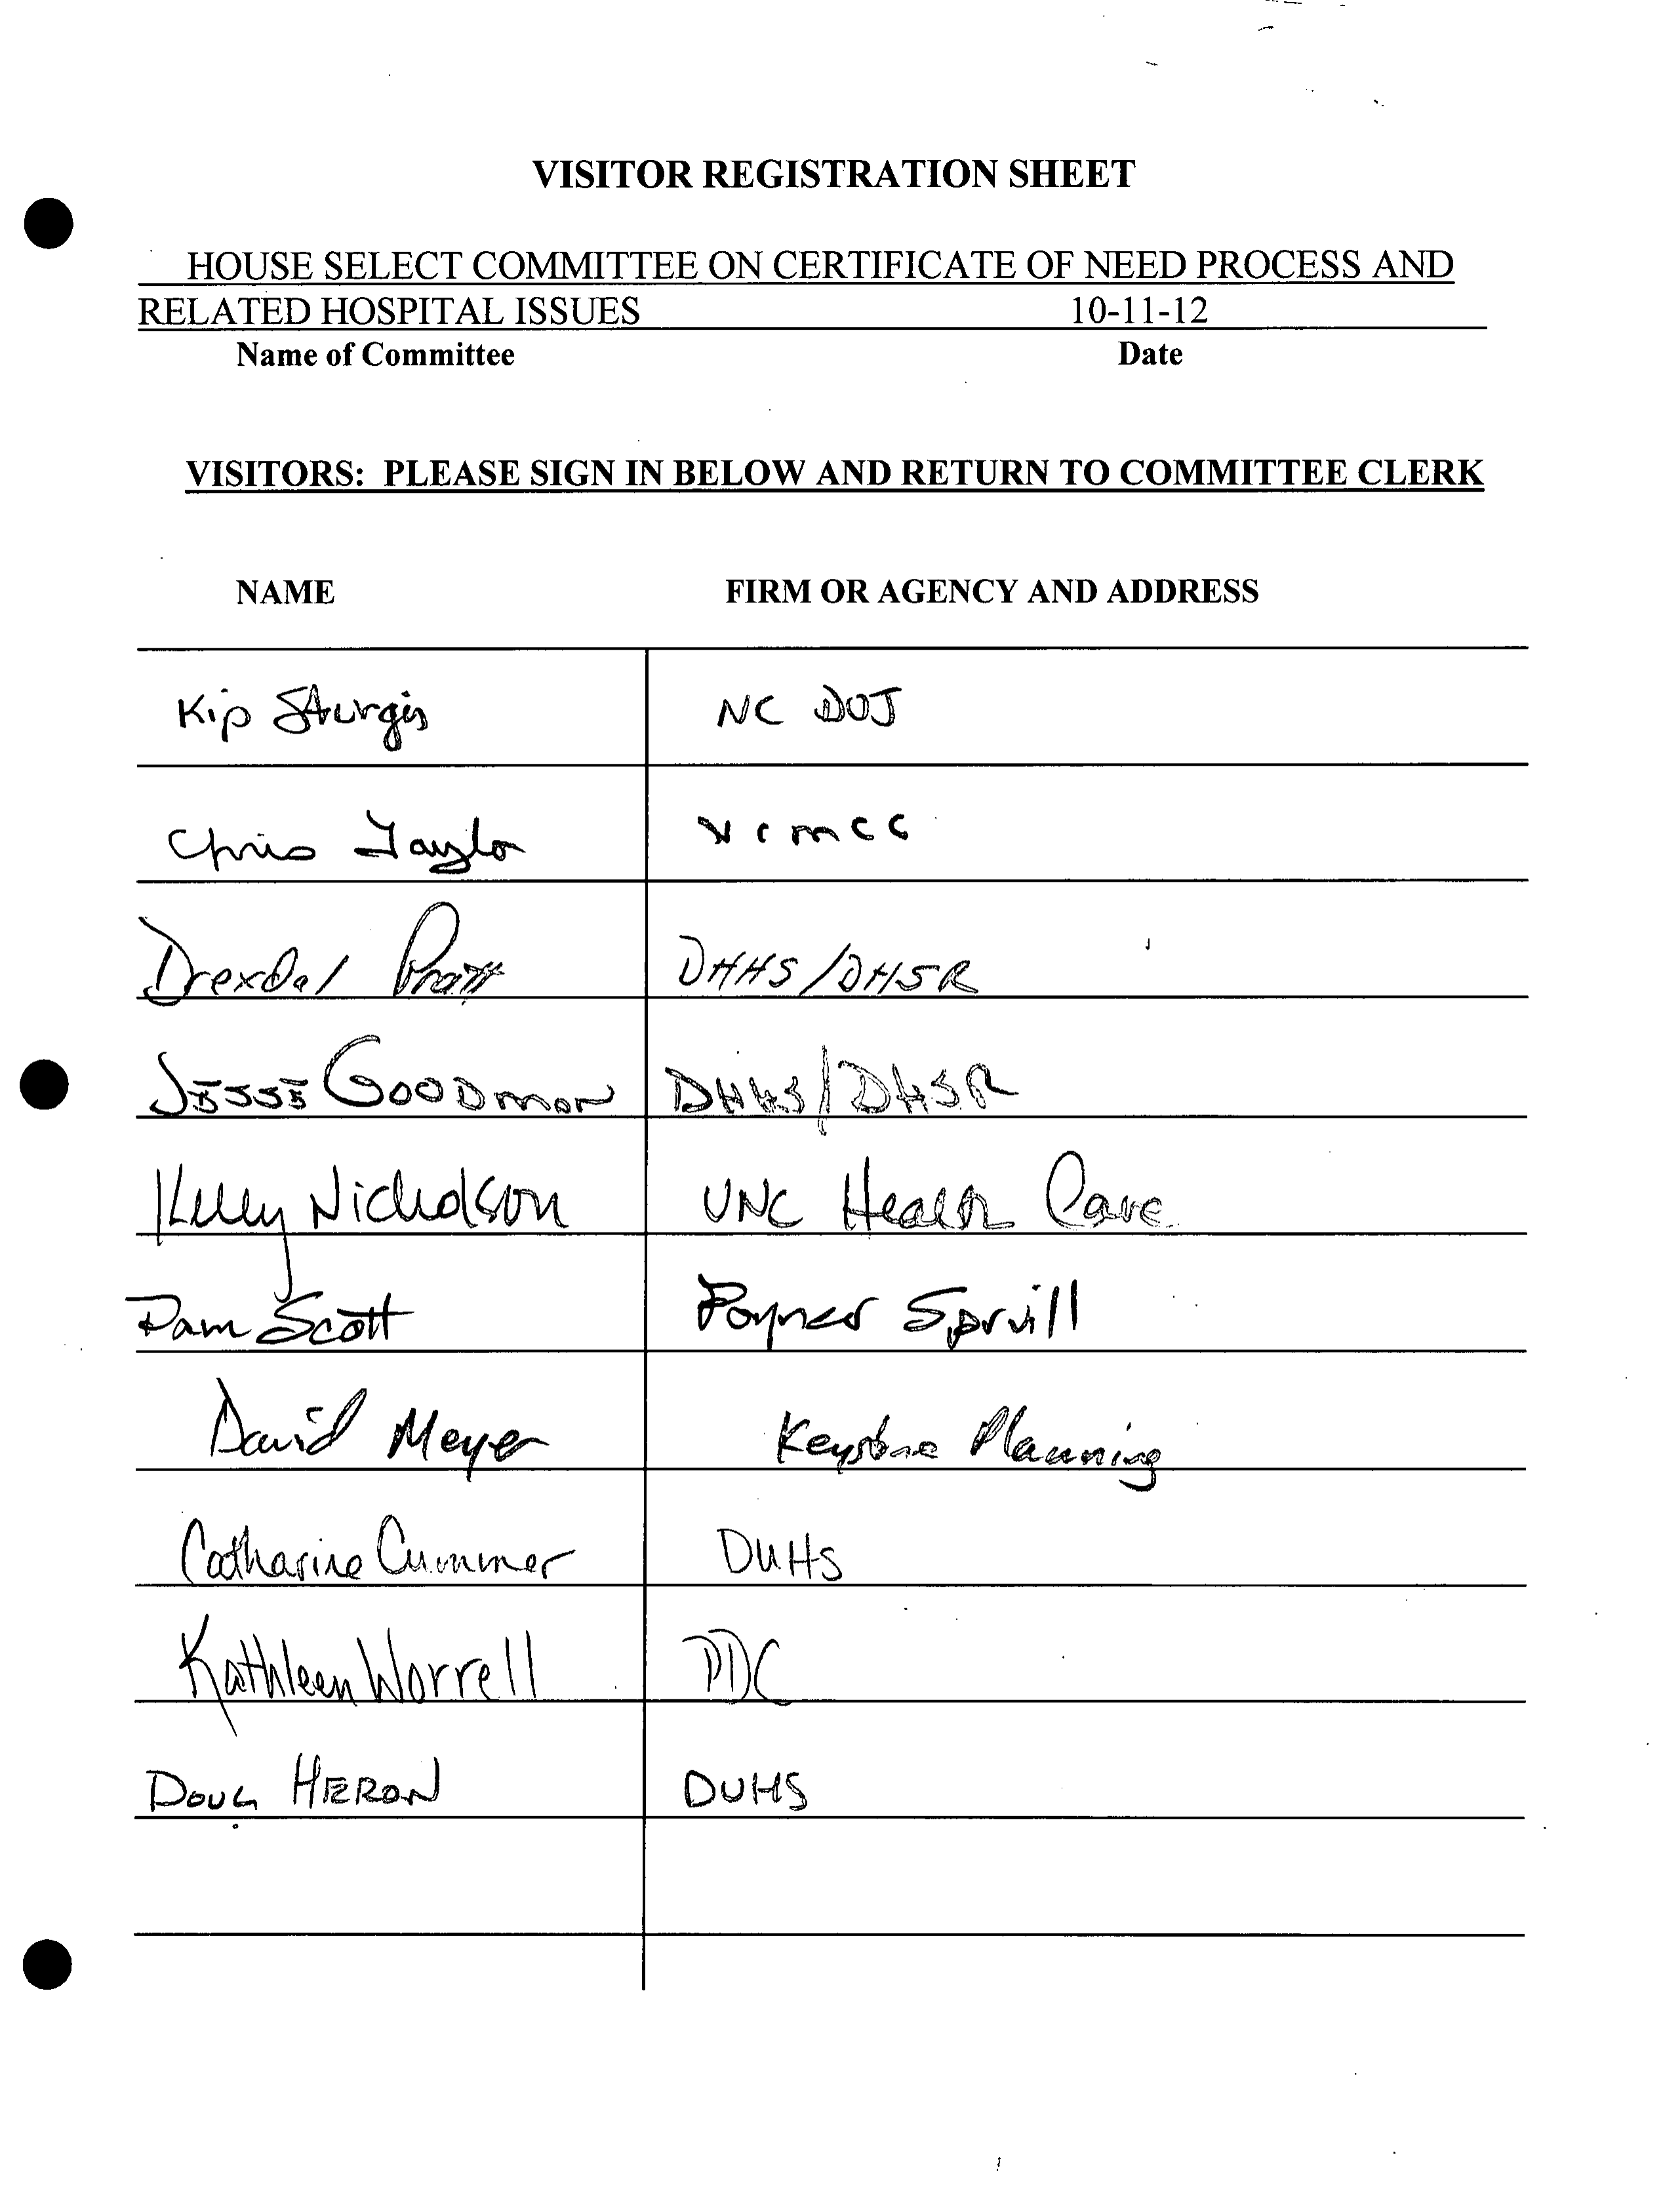 VISITOR REGISTRATION SHEET
HOUSE SELECT COMMITTEE ON CERTIFICATE OF NEED PROCESS AND
RELATED HOSPITAL ISSUES 10-11-12
Name of Committee Date
VISITORS: PLEASE SIGN IN BELOW AND RETURN TO COMMITTEE CLERK
NAME FIRM OR AGENCY AND ADDRESS
Kip Sturgis NC DOJ
Chris Taylor
Drexdal Pratt DHHS/DHSR
JESSE GOODMAN DHHS/DHSR
Kelly Nicholson UNC Health Care
Pam Scott Poyner Spruill
David Meyer Keystone Planning
Catharine Cummer DUHS
Kathleen Worrell PDC
DOUG HERON DUHS